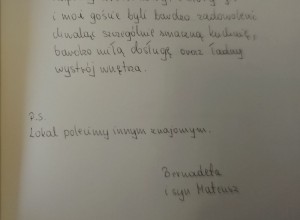 i moi goście byli bardzo zadowoleni
chwaląc szczególnie smaczną kuchnię,
bardzo miłą obsługę oraz ładny
wystrój wnętrza.
P.S.
Lokal polecimy innym znajomym.
Bernadeta
i syn Mateusz